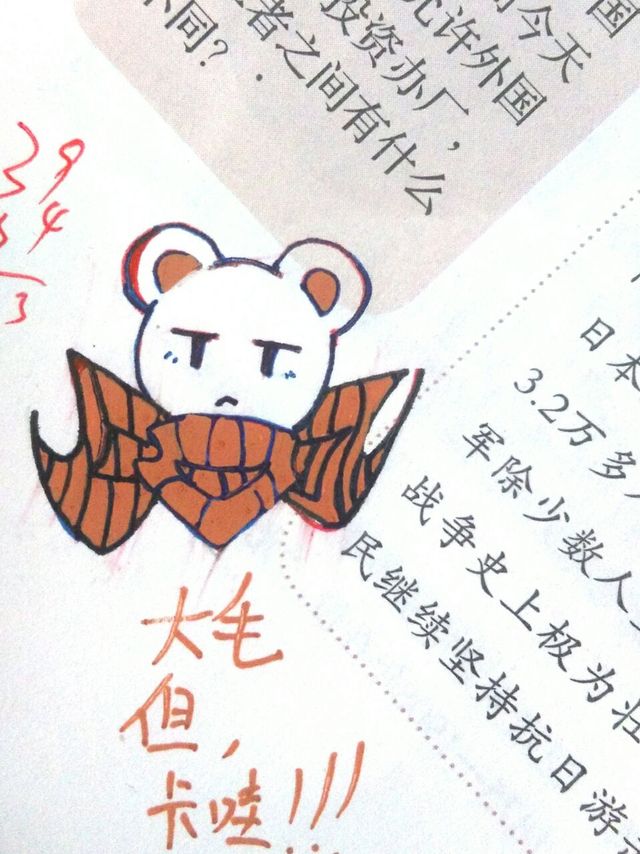 国
今天
允许外国
投资办厂，
者之间有什么
不同？
9
4
3
大毛
但，
卡哇!!!
日本
3.2万多
军除少数人
战争史上极为壮
民继续坚持抗日游